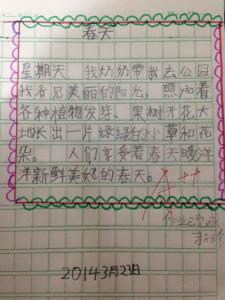 春天
星期天，我奶奶带我去公园
我看见美丽的阳光，照yào着
各种植物发芽、果树开花、大
地长出一片绿绿的小草和花
朵。人们享受着春天暖洋
洋新鲜美好的春天。
作业已完成
2014年3月23日